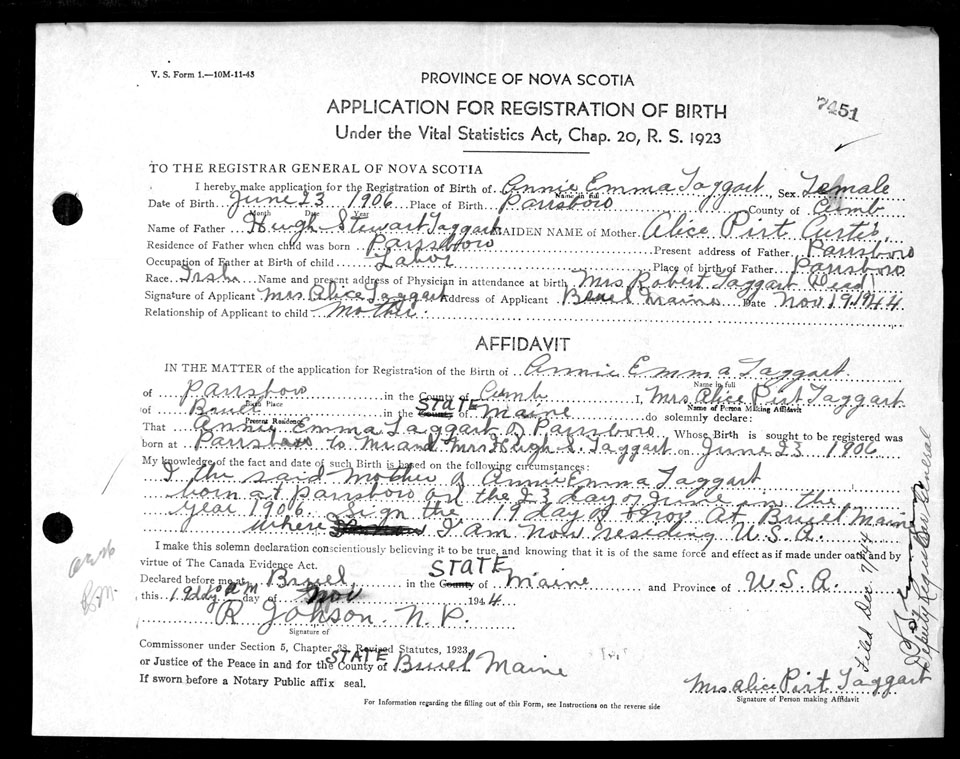 V. S. Form 1.—10M-11-43
PROVINCE OF NOVA SCOTIA
7451
APPLICATION FOR REGISTRATION OF BIRTH
Under the Vital Statistics Act, Chap. 20, R. S. 1923
TO THE REGISTRAR GENERAL OF NOVA SCOTIA
I hereby make application for the Registration of Birth of Annie Emma Taggart, Sex Female
Name in full
Date of Birth June 23 1906 Place of Birth Parrsboro County of Cumb
Month Date Year
Name of Father Hugh Stewart Taggart MAIDEN NAME of Mother Alice Pirt Curtis
Residence of Father when child was born Parrsboro Present address of Father Parrsboro
Occupation of Father at Birth of child Labor Place of birth of Father Parrsboro
Race Irish Name and present address of Physician in attendance at birth Mrs Robert Taggart Dead
Signature of Applicant Mrs Alice Taggart Address of Applicant Maine Date Nov 19 1944
Relationship of Applicant to child Mother.
AFFIDAVIT
IN THE MATTER of the application for Registration of the Birth of Annie Emma Taggart
Name in full
of Parrsboro in the County of Cumb I, Mrs Alice Pirt Taggart
Birth Place Name of Person Making Affidavit
of in the County STATE of Maine do solemnly declare:
Present Residence
That Annie Emma Taggart of Parrsboro Whose Birth is sought to be registered was
born at Parrsboro to Mr and Mrs Hugh S. Taggart on June 23 1906
My knowledge of the fact and date of such Birth is based on the following circumstances:
I the said Mother of Annie Emma Taggart
born at Parrsboro on the 23 day of June in the
year 1906. Sign the 19 day of Nov at Maine
where I am now residing U.S.A.
I make this solemn declaration conscientiously believing it to be true, and knowing that it is of the same force and effect as if made under oath and by
virtue of The Canada Evidence Act.
Declared before me at in the County STATE of Maine and Province of U.S.A.
this 19 day of Nov 1944
R Johson. N.P.
Signature of
Commissioner under Section 5, Chapter 38, Revised Statutes, 1923
or Justice of the Peace in and for the County STATE of Maine
If sworn before a Notary Public affix seal.
Mrs Alice Pirt Taggart
Signature of Person making Affidavit
For Information regarding the filling out of this Form, see Instructions on the reverse side
Filed Dec. 7/44
Deputy Registrar General